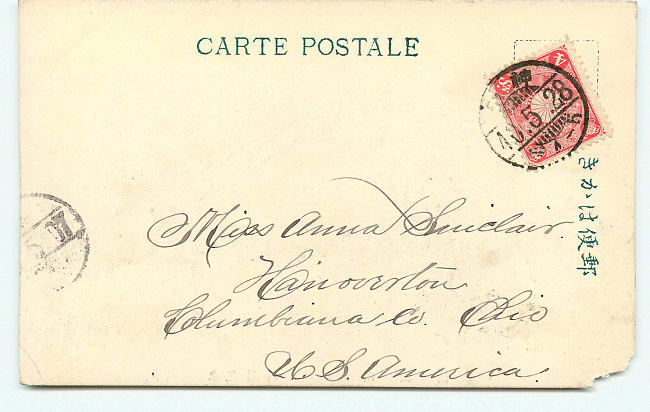 CARTE POSTALE
きかは便郵
Miss Anna Sinclair.
Hanoverton
Clumbiana Co. Ohio
U.S. America.